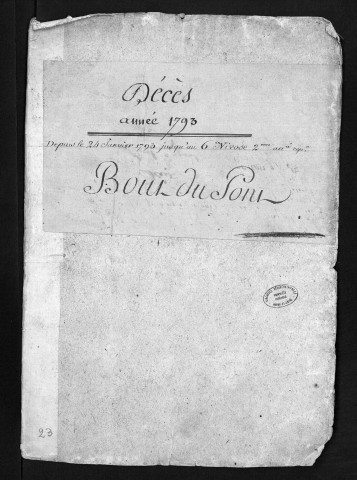 Décès
année 1793
Depuis le 24 Janvier 1793 jusqu'au 6 Nivose 2me
Bout du Pont
23